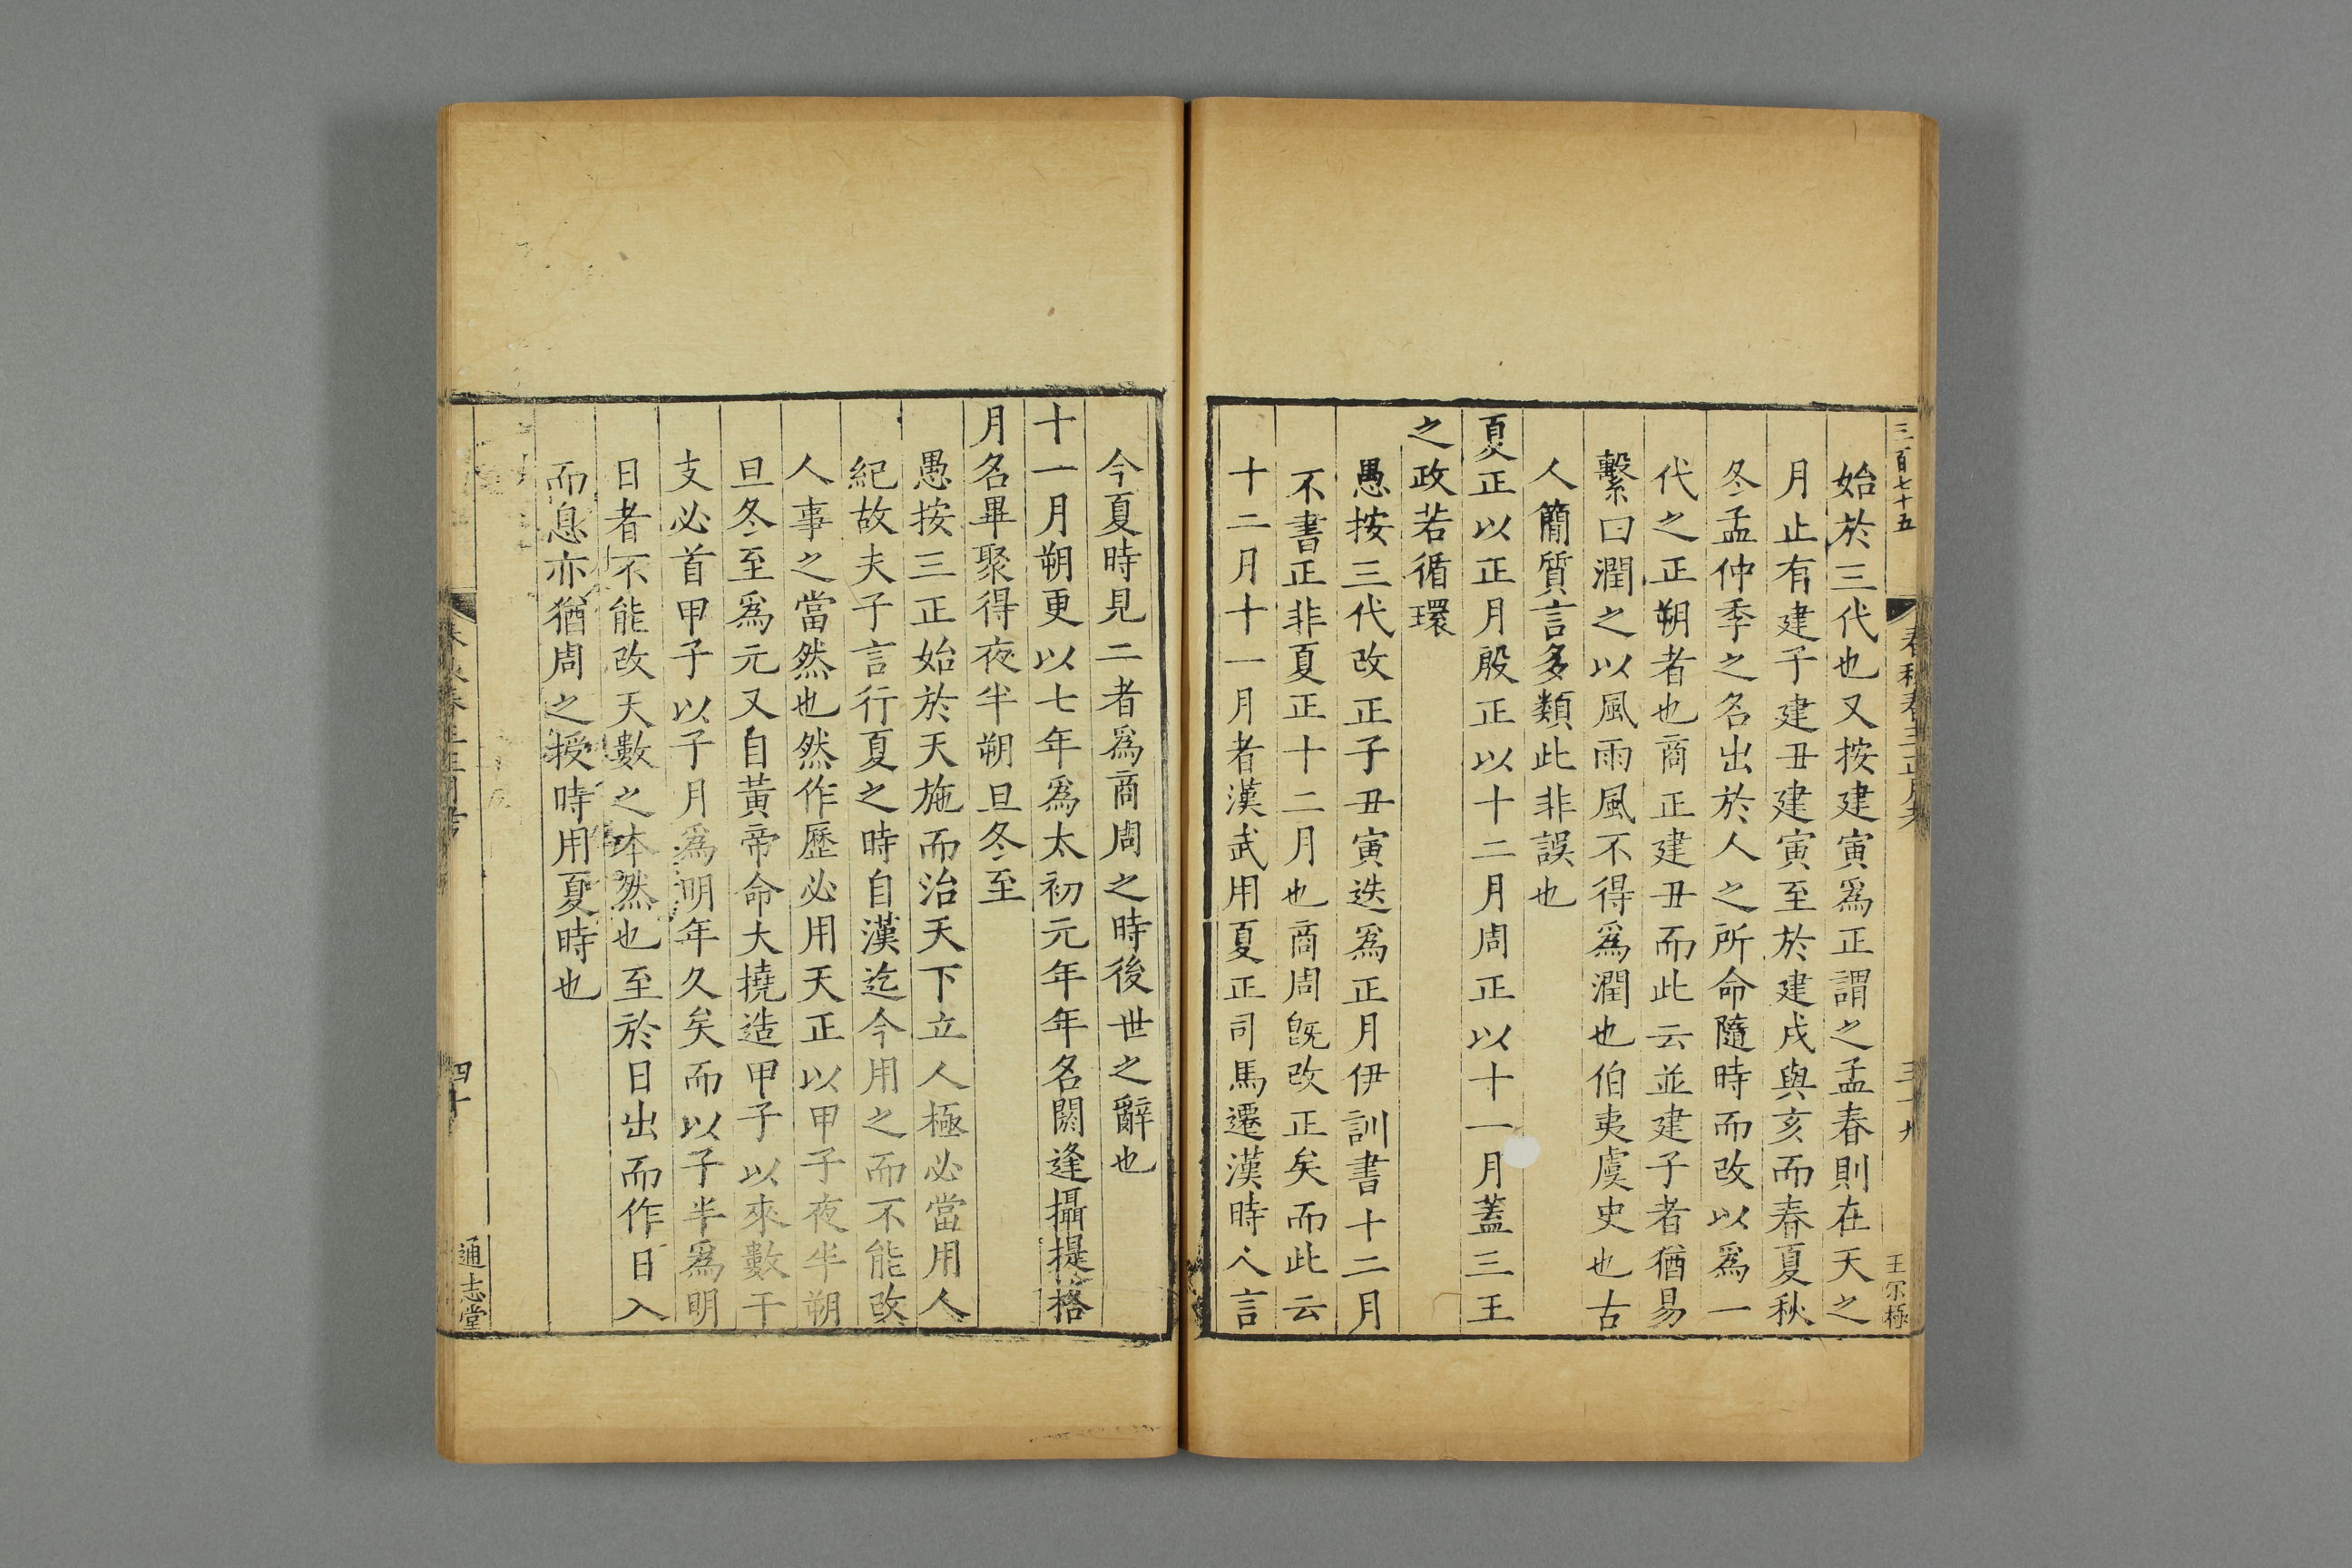 三百七十五
春秋春王正月考
三十九
王尔極
始於三代也又按建寅爲正謂之孟春則在天之
月止有建子建丑建寅至於建戌與亥而春夏秋
冬孟仲季之名出於人之所命隨時而改以爲一
代之正朔者也商正建丑而此云並建子者猶易
繫曰潤之以風雨風不得爲潤也伯夷虞史也古
人簡質言多類此非誤也
夏正以正月殷正以十二月周正以十一月蓋三王
之政若循環
愚按三代改正子丑寅迭爲正月伊訓書十二月
不書正非夏正十二月也商周旣改正矣而此云
十二月十一月者漢武用夏正司馬遷漢時人言
今夏時見二者爲商周之時後世之辭也
十一月朔更以七年爲太初元年年名閼逢攝提格
月名畢聚得夜半朔旦冬至
愚按三正始於天施而治天下立人極必當用人
紀故夫子言行夏之時自漢迄今用之而不能改
人事之當然也然作歷必用天正以甲子夜半朔
旦冬至爲元又自黃帝命大撓造甲子以來數干
支必首甲子以子月爲明年久矣而以子半爲明
日者不能改天數之本然也至於日出而作日入
而息亦猶周之授時用夏時也
四十
通志堂